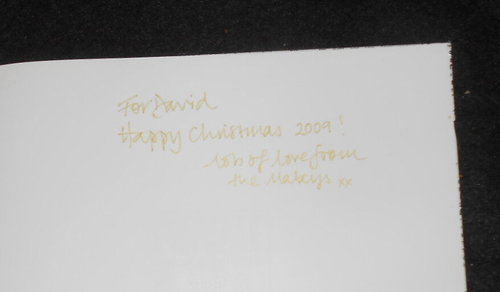 For David
Happy Christmas 2009!
lots of love from
the Makeys xx